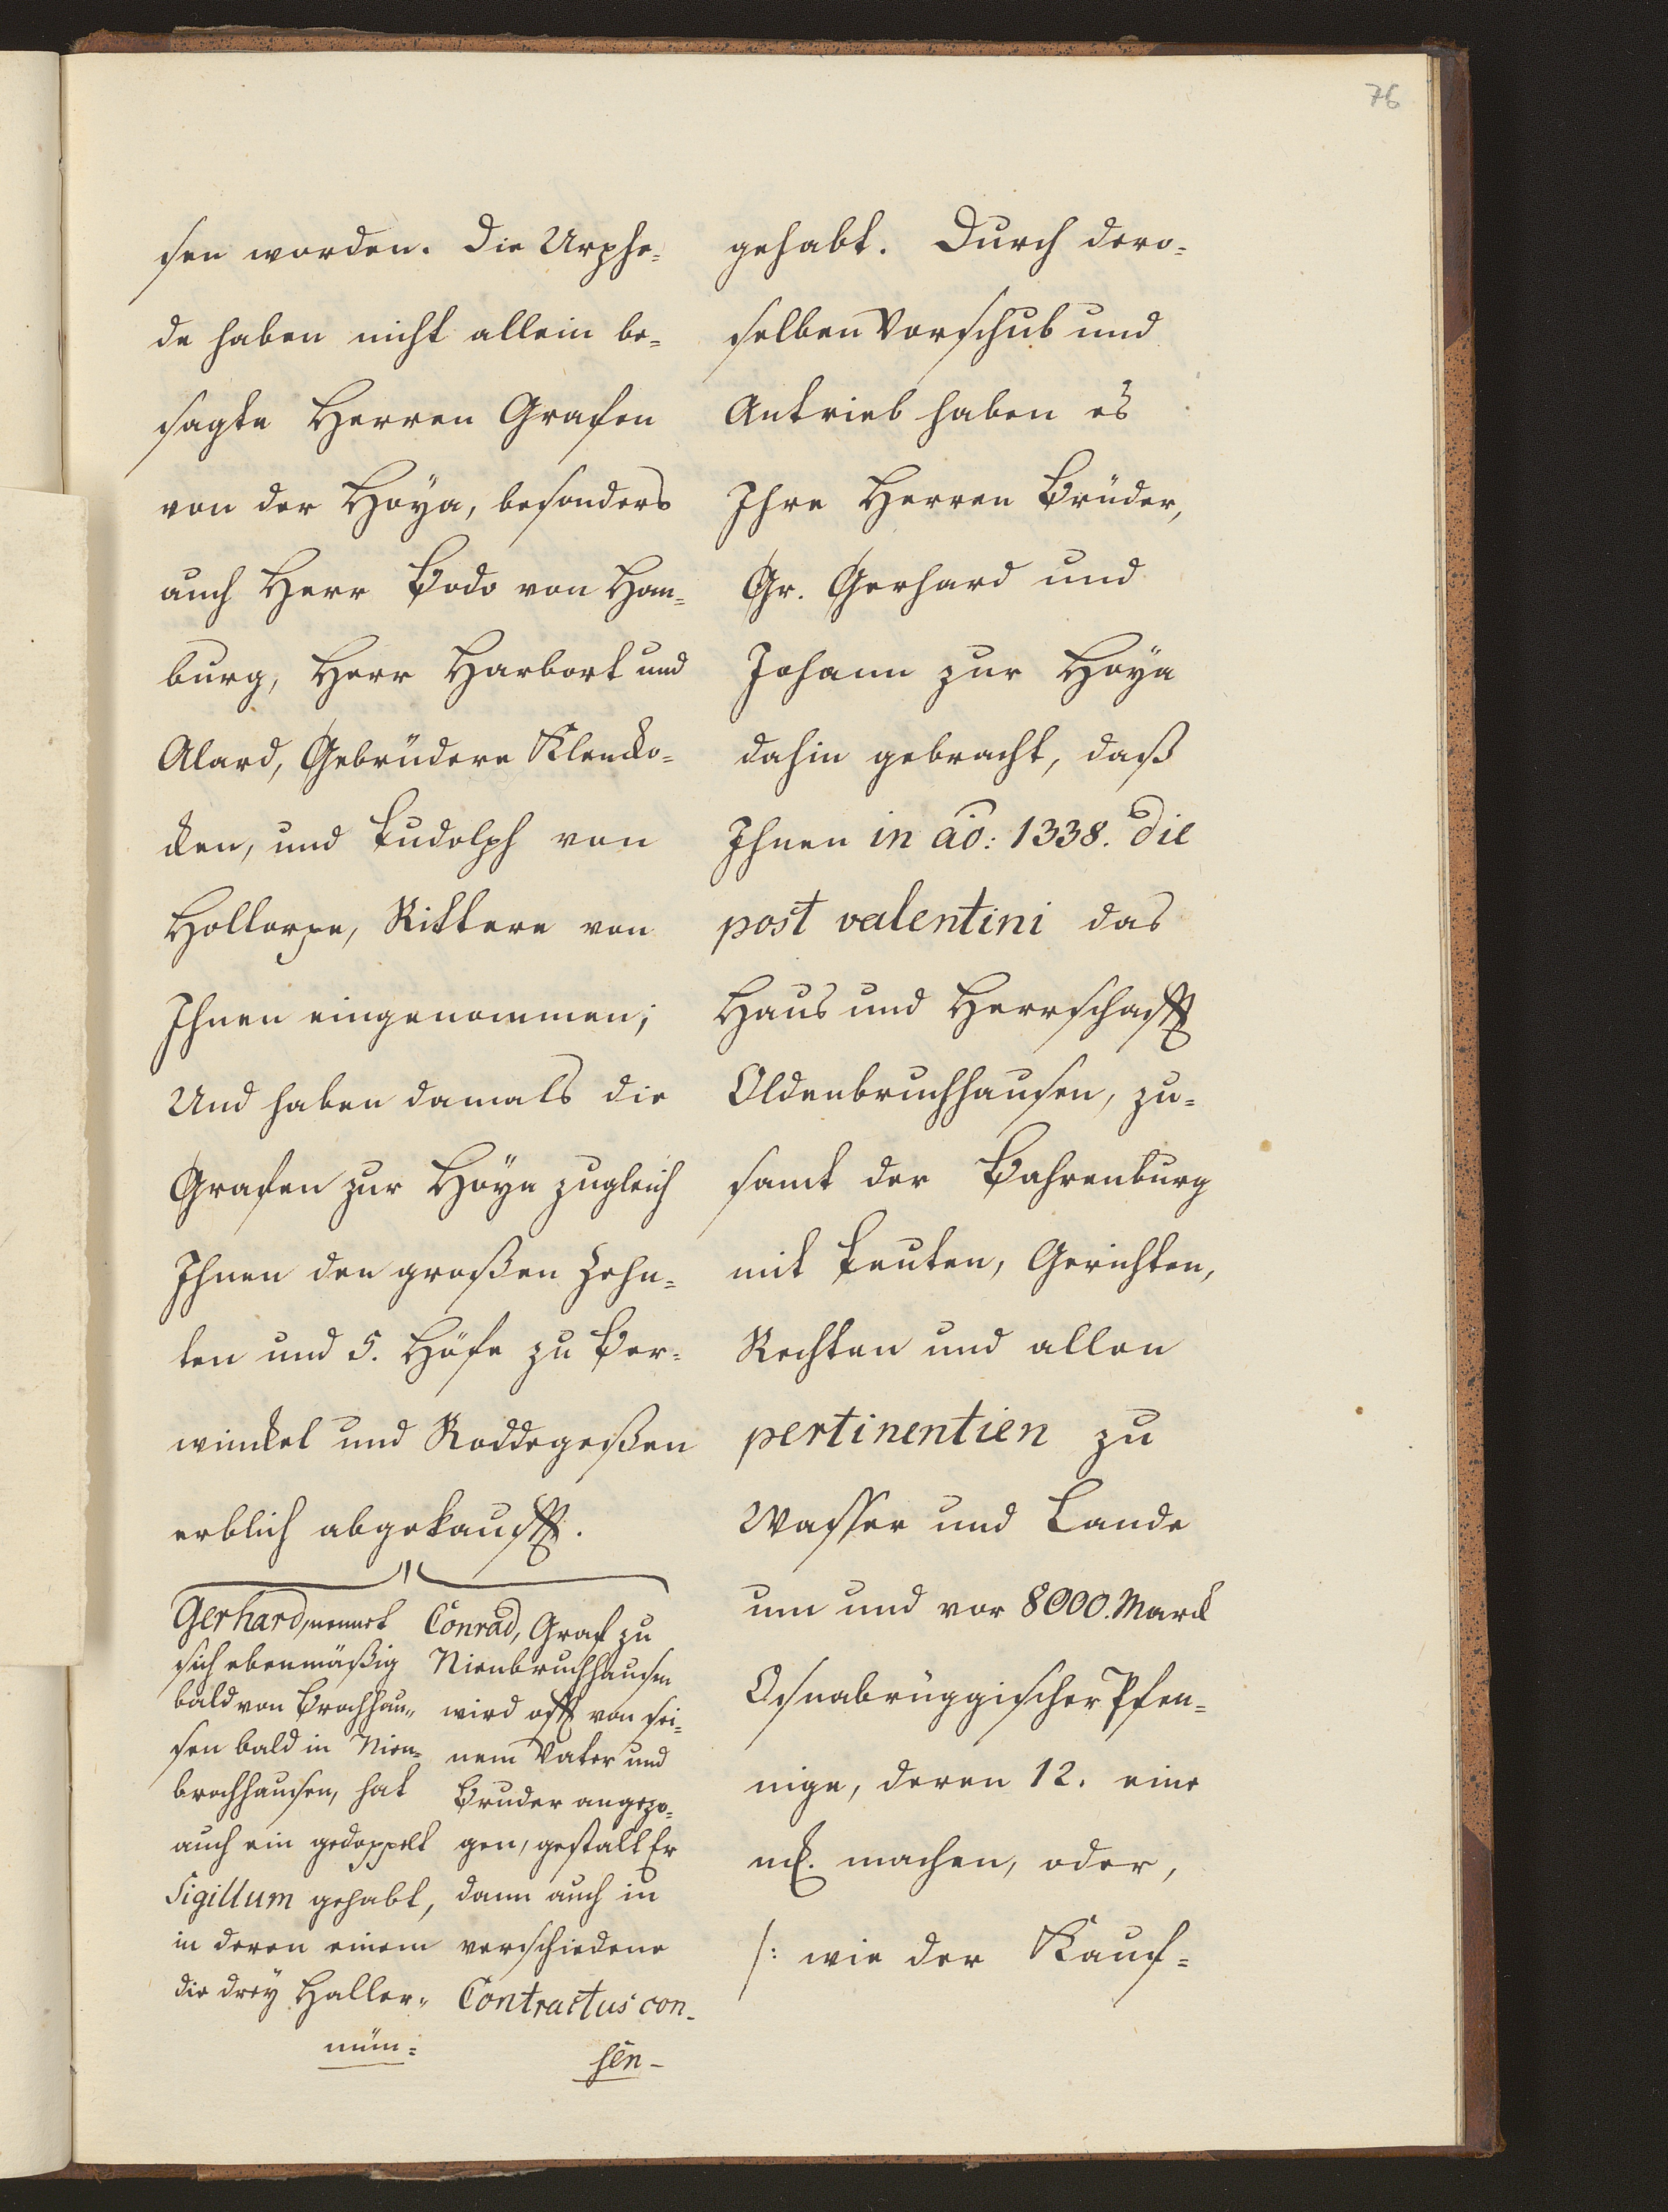 76
sen worden. Die Urphe=
de haben nicht allein be=
sagte Herren Grafen
von der Hoya, besonders
auch Herr Bodo von Hom=
burg, Herr Harbort und
Alard, Gebrüdere Klencko=
cken, und Ludolph von
Holtorpe, Rittere von
Ihnen eingenommen;
Und haben damals die
Grafen zur Hoÿa zugleich
Ihnen den großen Zehn=
ten und 5. Höfe zu Ber=
winckel und Roddegeßen
erblich abgekaufft.
Gerhard, nennet
sich ebenmäßig
bald von Brochhau=
sen bald in Nien=
brochhausen, hat
auch ein gedoppelt
Sigillum gehabt,
in deren einem
die dreÿ Haller=
mün=
Conrad, Graf zu
Nienbruchhausen
wird offt von sei=
nem Vater und
Bruder angezo=
gen, gestalt Er
dann auch in
verschiedene
Contractus con-
sen-
gehabt. Durch dero=
selben Vorschub und
Antrieb haben es
Ihre Herren Brüder,
Gr. Gerhard und
Johann zur Hoÿa
dahin gebracht, daß
Ihnen in ao: 1338. die
post valentini das
Haus und Herrschafft
Oldenbruchhausen, zu=
samt der Bahrenburg
mit Leuten, Gerichten,
Rechten und allen
pertinentien zu
Wasser und Lande
um und vor 8000. Marck
Osnabrüggischer Pfen=
nige, deren 12. eine
mk. machen, oder,
/: wie der Kauf=